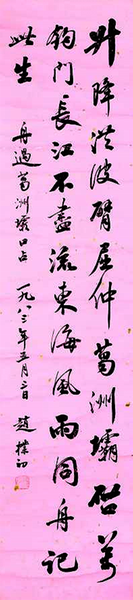 升降洪波臂屈伸葛洲壩啓萬
鈞門長江不盡流東海風雨同舟記
此生
舟過葛洲壩口占 一九八三年五月三日 趙樸初